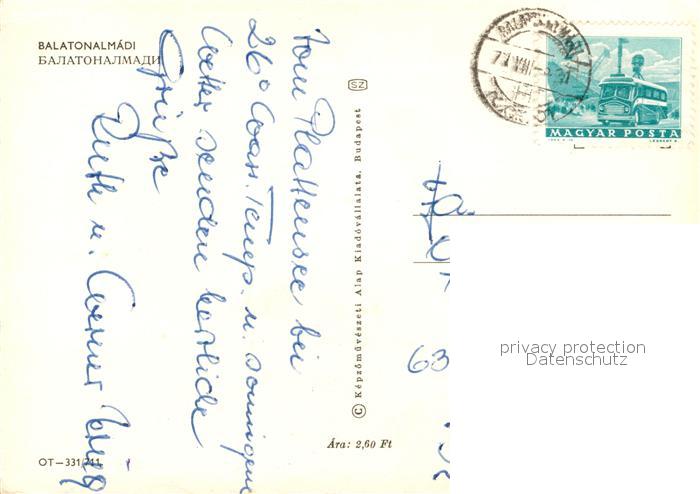 BALATONALMÁDI
БАЛАТОНАЛМАДИ
Vom Plattensee bei
26° Wass. Temp. u. sonnigem
Wetter senden herzliche
Grüße
Ruth u. Werner
SZ
© Képzőművészeti Alap Kiadóvállalata, Budapest
Ára: 2,60 Ft
OT—331/711
MAGYAR POSTA
63
privacy protection
Datenschutz